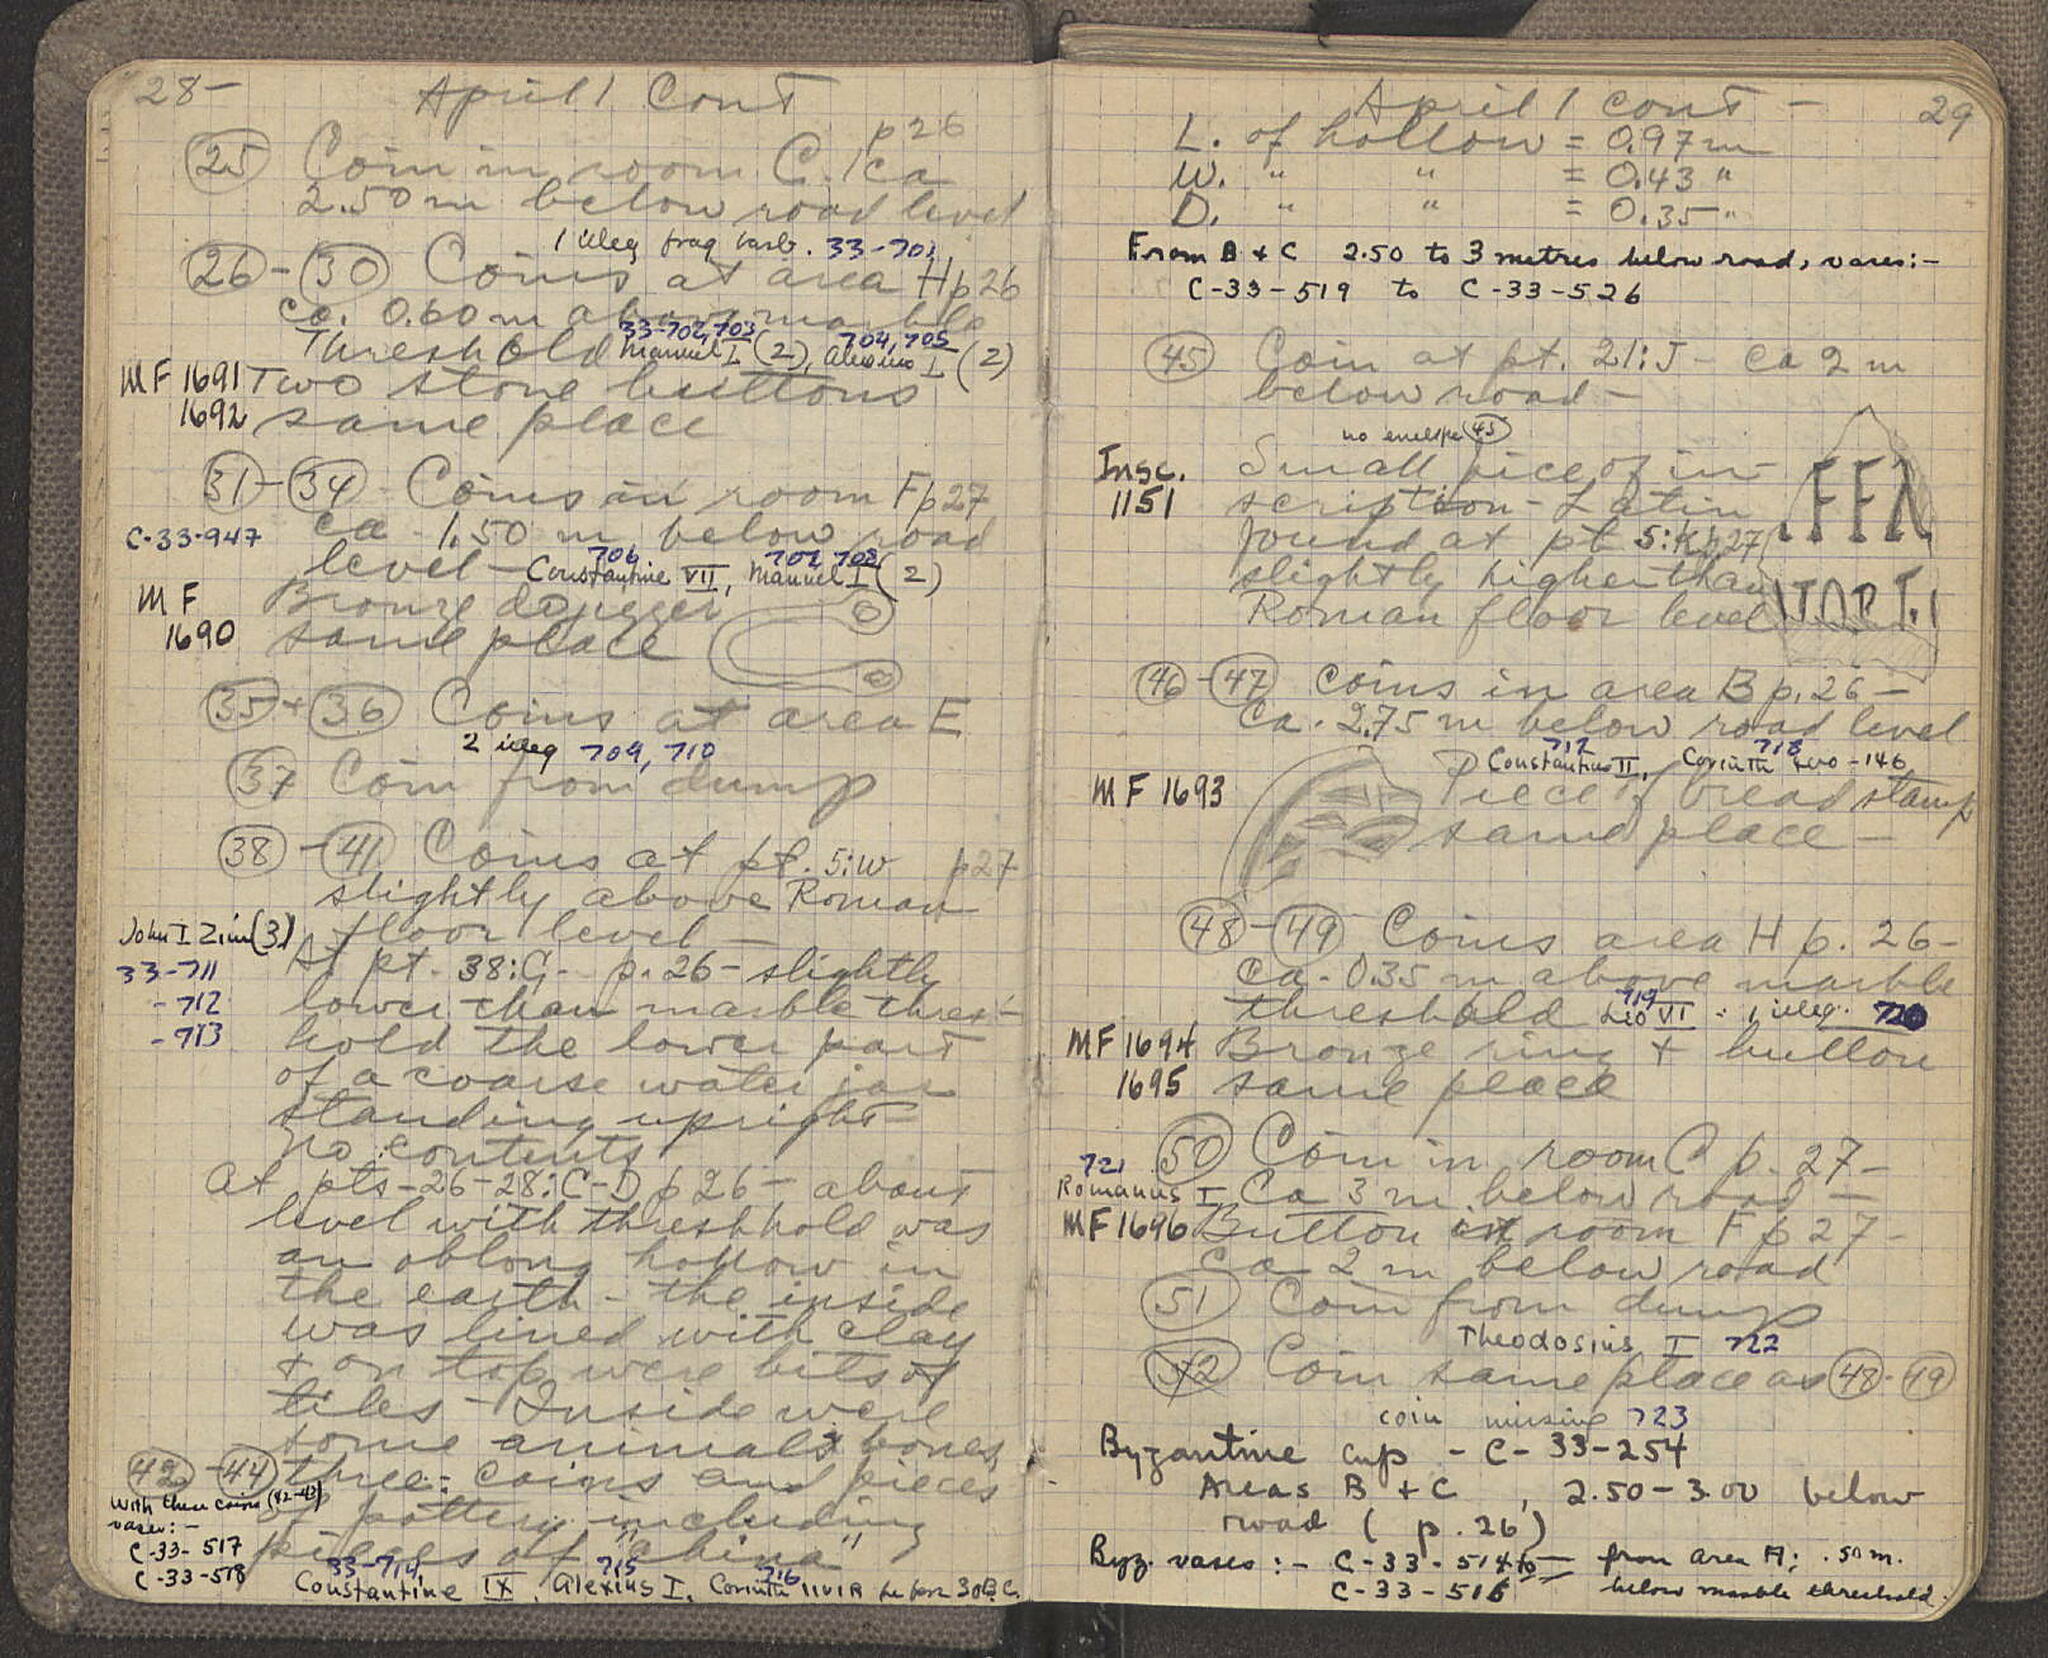 28-
April 1 Cont
p 26
(25) Coin in room C. / ca
2.50 m below road level
1 illeg frag barb. 33-701
(26)-(30) Coins at area H p 26
ca. 0.60 m above marble
Threshold
33-702, 703 704, 705
Manuel I (2), Alexius I (2)
MF 1691 Two stone buttons
1692 same place
(31)-(34) Coins in room F p 27
C-33-947 ca 1.50 m below road
level -
706 707 708
Constantine VII, Manuel I (2)
MF Bronze
1690 same place
(35) + (36) Coins at area E
2 illeg 709, 710
(37) Coin from dump
(38)-(41) Coins at pt. 5:W p 27
slightly above Roman
floor level -
John I Zim (3)
33-711
-712
-713
At pt. 38:G - p. 26 - slightly
lower than marble thres-
hold the lower part
of a coarse water jar
standing upright
No contents
At pts - 26-28: C-D p 26 - about
level with threshhold was
an oblong hollow in
the earth - the inside
was lined with clay
+ on top were bits of
tiles - Inside were
some animals bones,
(42)-(44) three: coins and pieces
of pottery including
pieces of "china"
With these coins (42-43)
vases:-
C-33-517
C-33-518
33-714, 715 716
Constantine IX, Alexius I, Corinth IIVIR before 30 B.C.
April 1 cont - 29
L. of hollow = 0.97 m
W. " " = 0.43 "
D. " " = 0.35 "
From B + C 2.50 to 3 metres below road, vases:-
C-33-519 to C-33-526
(45) Coin at pt. 21:J - ca 2 m
below road -
no envelope (45)
Insc. Small piece of in-
1151 scription - Latin
found at pt 5:K p 27
slightly higher than
Roman floor level
(46)-(47) Coins in area B p. 26 -
Ca. 2.75 m below road level
717 718
Constantius II, Corinth two - 146
MF 1693 Piece of bread stamp
same place -
(48)-(49) Coins area H p. 26 -
Ca. 0.35 m above marble
threshold
719
Leo VI : 1 illeg. 720
MF 1694 Bronze ring + button
1695 same place
(50) Coin in room C p. 27 -
721
Romanus I Ca 3 m below road -
MF 1696 Button in room F p 27 -
Ca 2 m below road
(51) Coin from dump
Theodosius I 722
(52) Coin same place as (48)-(49)
coin missing 723
Byzantine cup - C-33-254
Areas B + C, 2.50-3.00 below
road (p. 26)
Byz. vases:- C-33-514 to from area A: .50 m.
C-33-516 below marble threshold.